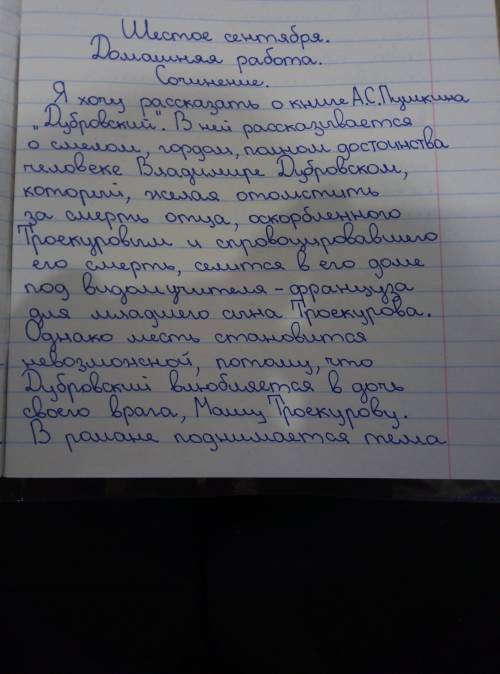 Шестое сентября.
Домашняя работа.
Сочинение.
Я хочу рассказать о книге А.С.Пушкина
„Дубровский". В ней рассказывается
о смелом, гордом, полном достоинства
человеке Владимире Дубровском,
который, желая отомстить
за смерть отца, оскорбленного
Троекуровым и спровоцировавшего
его смерть, селится в его доме
под видом учителя - француза
для младшего сына Троекурова.
Однако месть становится
невозможной, потому, что
Дубровский влюбляется в дочь
своего врага, Машу Троекурову.
В романе поднимается тема